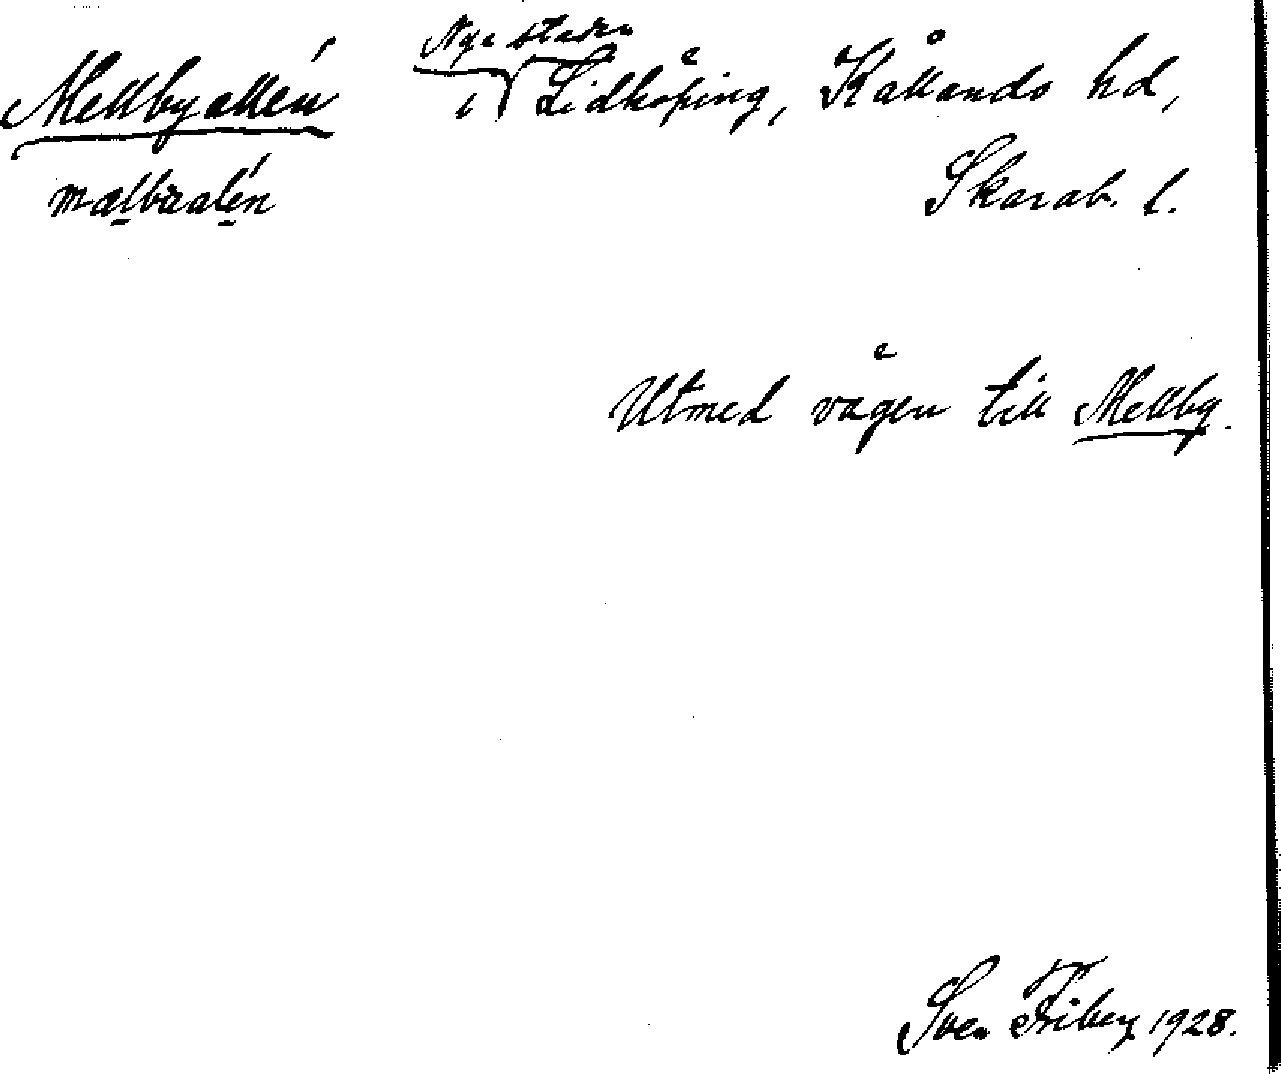 Mellbyallén
Nya staden
i Lidköping, Kållands hd,
mælbaalén
Skarab. l.
Utmed vägen till Mellby.
Sven Friberg 1928.